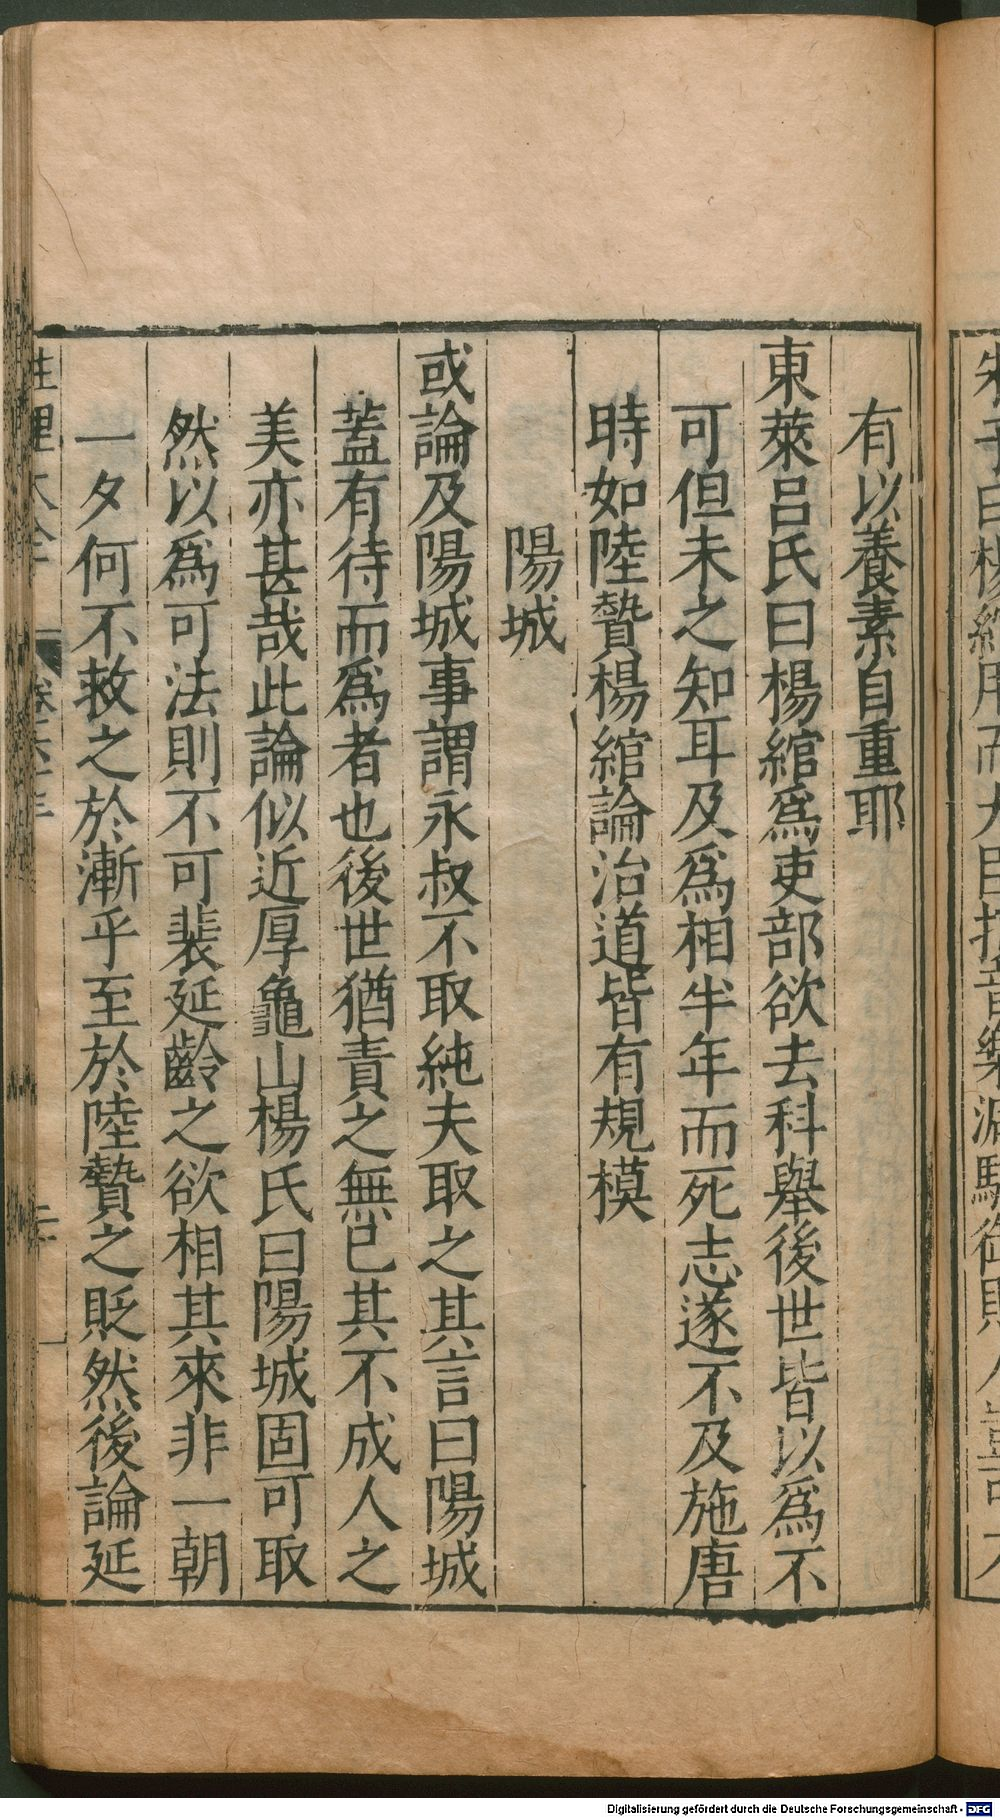 有以養素自重耶
東萊呂氏曰楊綰爲吏部欲去科舉後世皆以爲不
可但未之知耳及爲相半年而死志遂不及施唐
時如陸贄楊綰論治道皆有規模
陽城
或論及陽城事謂永叔不取純夫取之其言曰陽城
蓋有待而爲者也後世猶責之無已其不成人之
美亦甚哉此論似近厚龜山楊氏曰陽城固可取
然以爲可法則不可裴延齡之欲相其來非一朝
一夕何不救之於漸乎至於陸贄之貶然後論延
性理大全
Digitalisierung gefördert durch die Deutsche Forschungsgemeinschaft - DFG